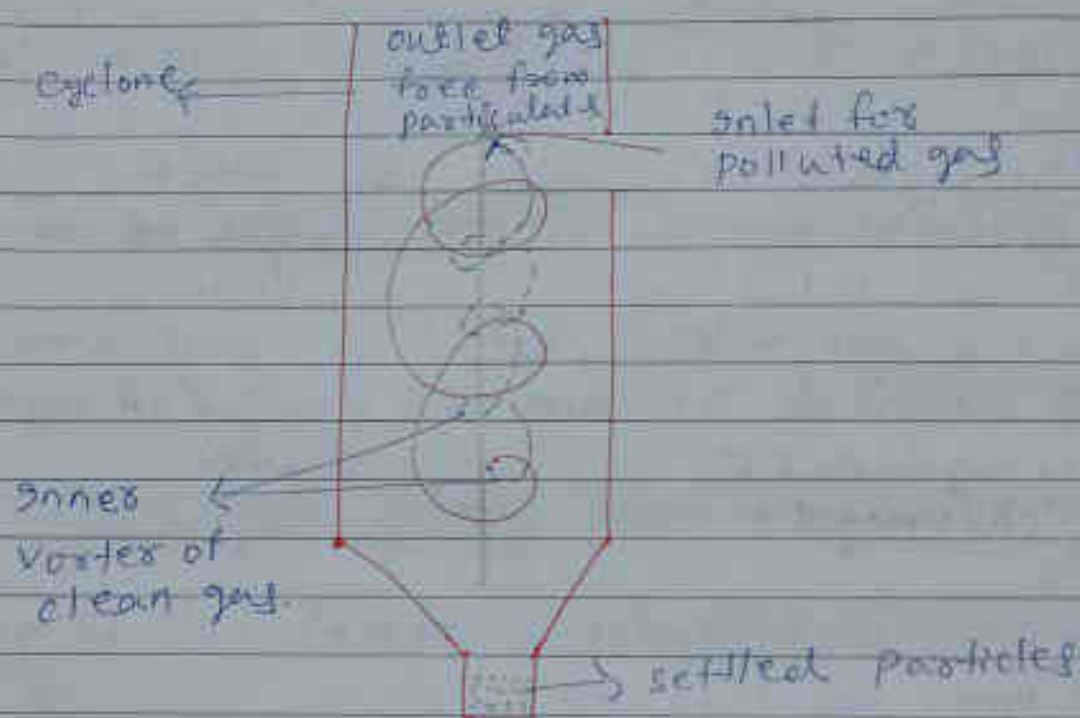 outlet gas
free from
particulates
cyclone
inlet for
polluted gas
inner
vorter of
clean gas.
settled particles